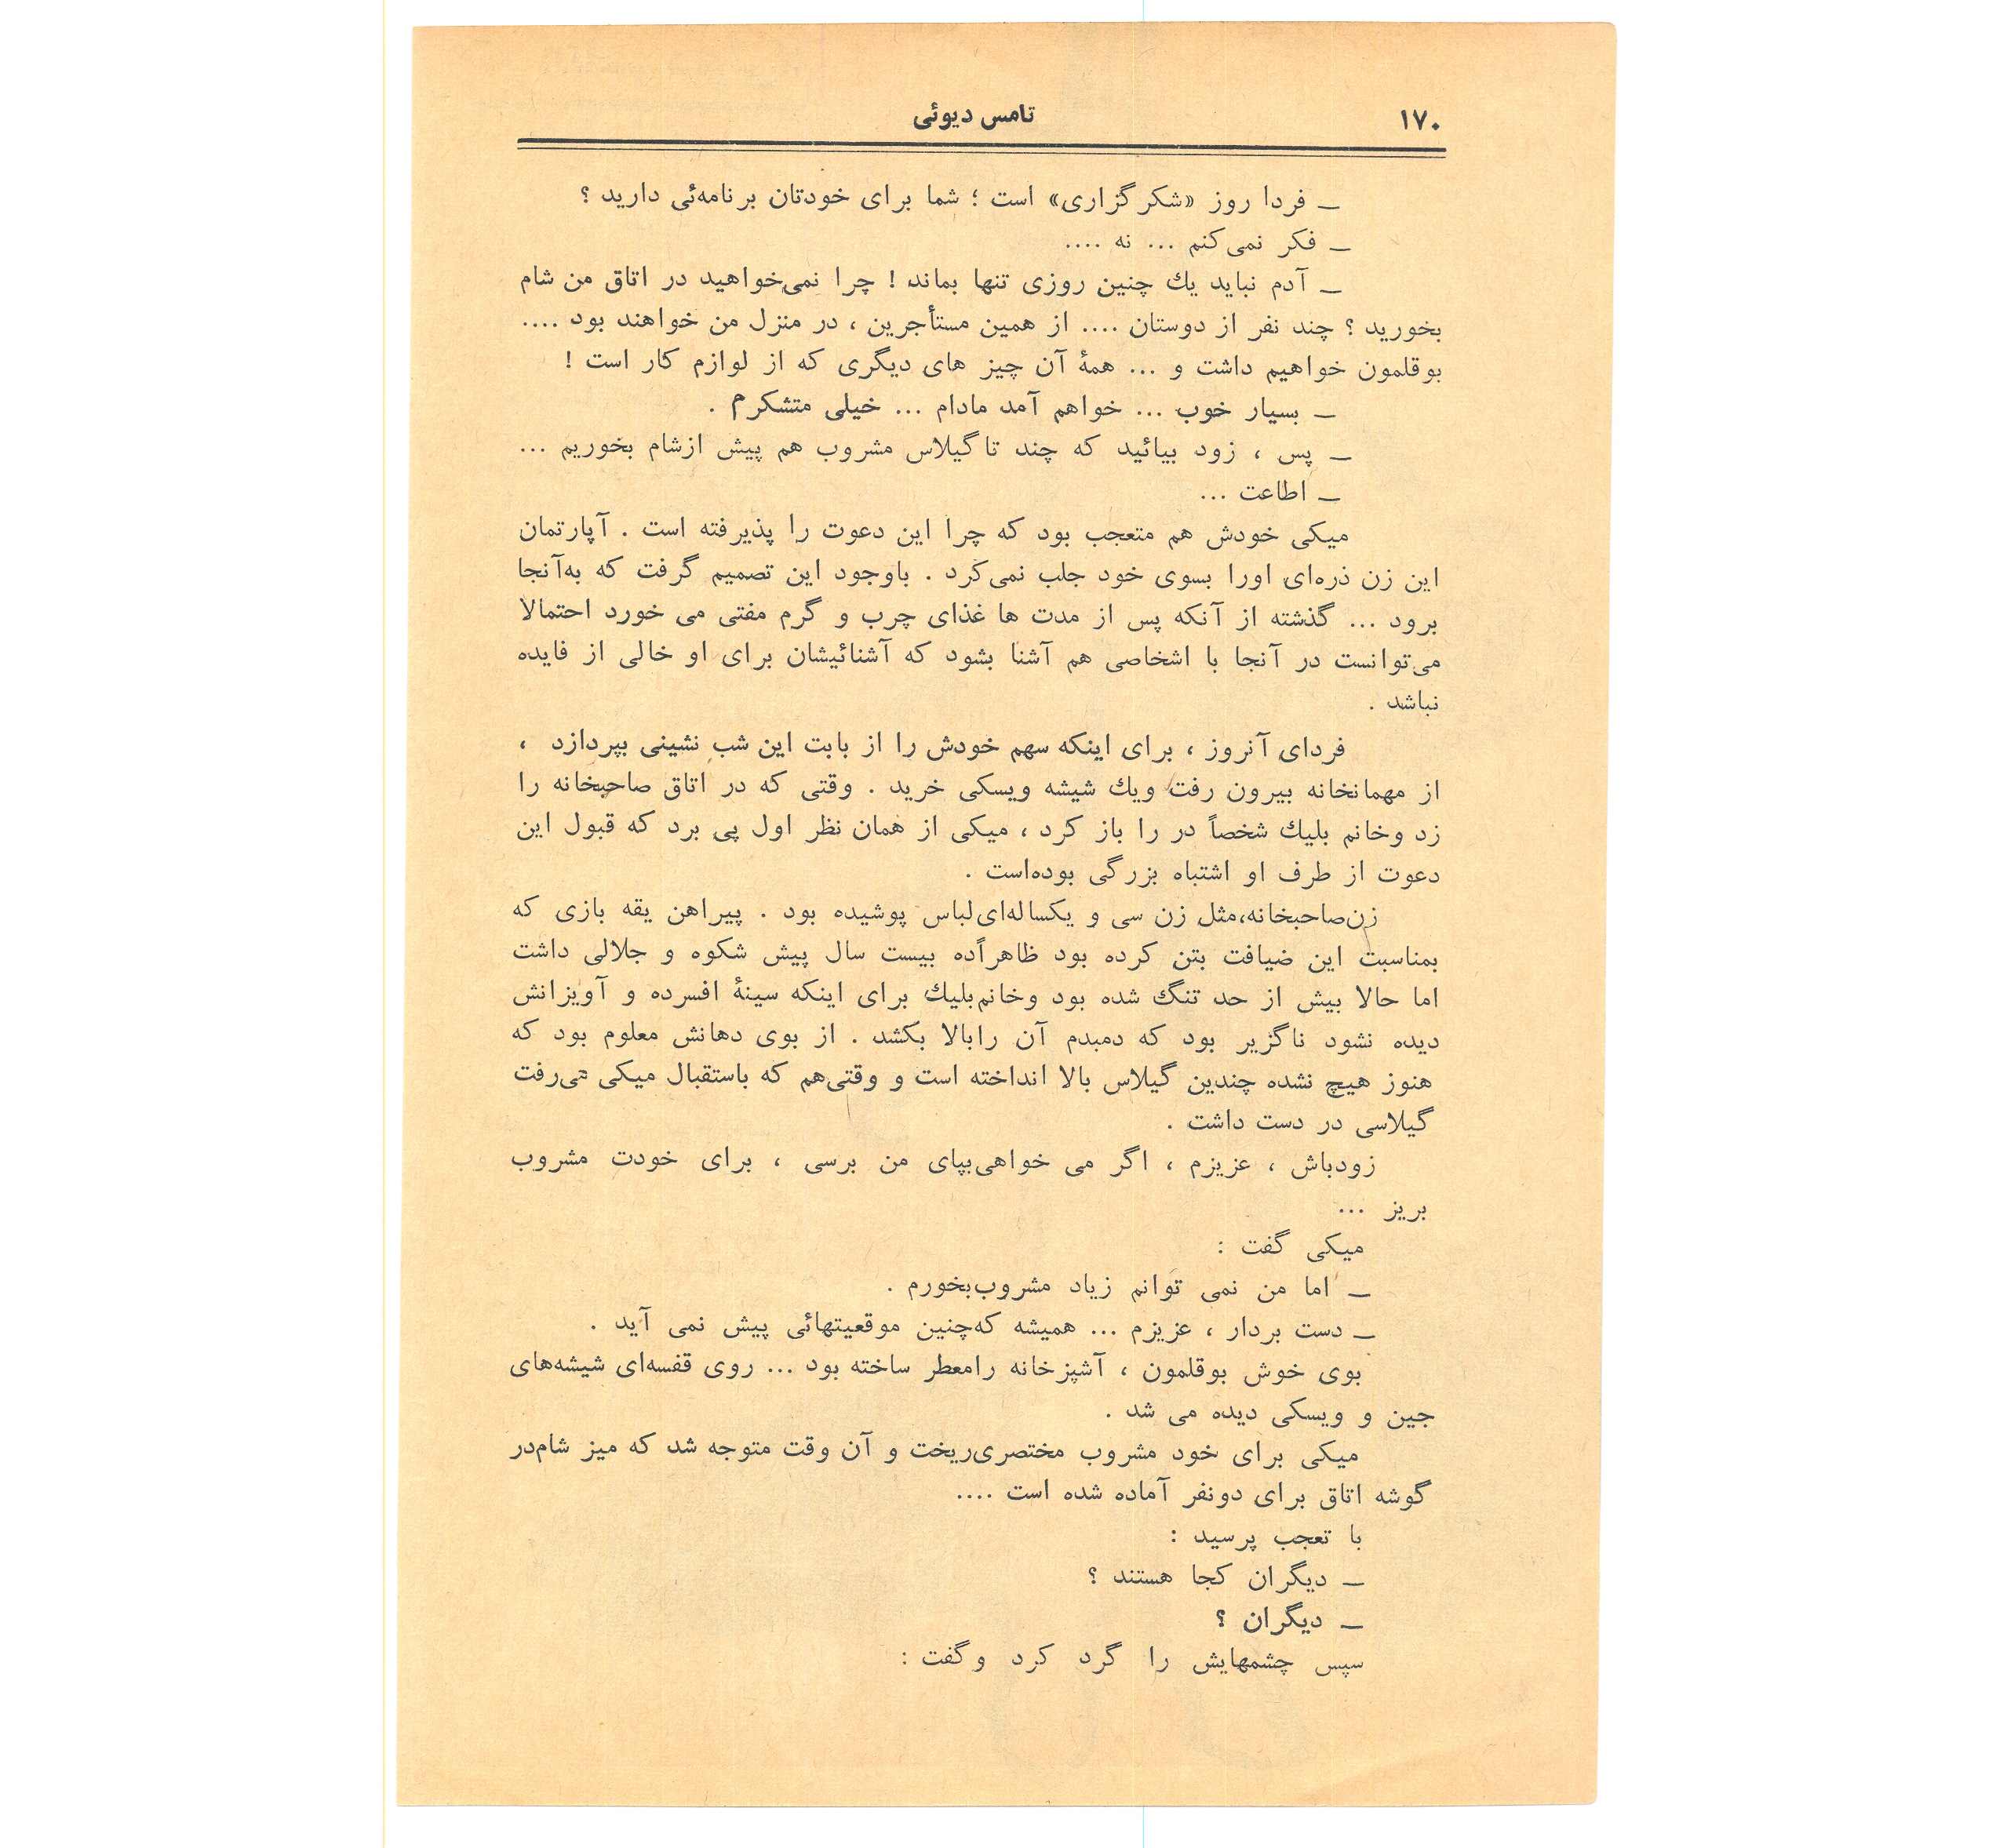 ۱۷۰
تامس دیوئی
ــ فردا روز «شکرگزاری» است ؛ شما برای خودتان برنامه‌ئی دارید ؟
ــ فکر نمی‌کنم ... نه ....
ــ آدم نباید یك چنین روزی تنها بماند ! چرا نمی‌خواهید در اتاق من شام
بخورید ؟ چند نفر از دوستان .... از همین مستأجرین ، در منزل من خواهند بود ....
بوقلمون خواهیم داشت و ... همهٔ آن چیز های دیگری که از لوازم کار است !
ــ بسیار خوب ... خواهم آمد مادام ... خیلی متشکرم .
ــ پس ، زود بیائید که چند تا گیلاس مشروب هم پیش ازشام بخوریم ...
ــ اطاعت ...
میکی خودش هم متعجب بود که چرا این دعوت را پذیرفته است . آپارتمان
این زن ذره‌ای اورا بسوی خود جلب نمی‌کرد . باوجود این تصمیم گرفت که به‌آنجا
برود ... گذشته از آنکه پس از مدت ها غذای چرب و گرم مفتی می خورد احتمالا
می‌توانست در آنجا با اشخاصی هم آشنا بشود که آشنائیشان برای او خالی از فایده
نباشد .
فردای آنروز ، برای اینکه سهم خودش را از بابت این شب نشینی بپردازد ،
از مهمانخانه بیرون رفت ویك شیشه ویسکی خرید . وقتی که در اتاق صاحبخانه را
زد وخانم بلیك شخصاً در را باز کرد ، میکی از همان نظر اول پی برد که قبول این
دعوت از طرف او اشتباه بزرگی بوده‌است .
زن‌صاحبخانه،مثل زن سی و یکساله‌ای‌لباس پوشیده بود . پیراهن یقه بازی که
بمناسبت این ضیافت بتن کرده بود ظاهراًده بیست سال پیش شکوه و جلالی داشت
اما حالا بیش از حد تنگ شده بود وخانم‌بلیك برای اینکه سینهٔ افسرده و آویزانش
دیده نشود ناگزیر بود که دمبدم آن رابالا بکشد . از بوی دهانش معلوم بود که
هنوز هیچ نشده چندین گیلاس بالا انداخته است و وقتی‌هم که باستقبال میکی می‌رفت
گیلاسی در دست داشت .
زودباش ، عزیزم ، اگر می خواهی‌بپای من برسی ، برای خودت مشروب
بریز ...
میکی گفت :
ــ اما من نمی توانم زیاد مشروب‌بخورم .
ــ دست بردار ، عزیزم ... همیشه که‌چنین موقعیتهائی پیش نمی آید .
بوی خوش بوقلمون ، آشپزخانه رامعطر ساخته بود ... روی قفسه‌ای شیشه‌های
جین و ویسکی دیده می شد .
میکی برای خود مشروب مختصری‌ریخت و آن وقت متوجه شد که میز شام‌در
گوشه اتاق برای دونفر آماده شده است ....
با تعجب پرسید :
ــ دیگران کجا هستند ؟
ــ دیگران ؟
سپس چشمهایش را گرد کرد و گفت :